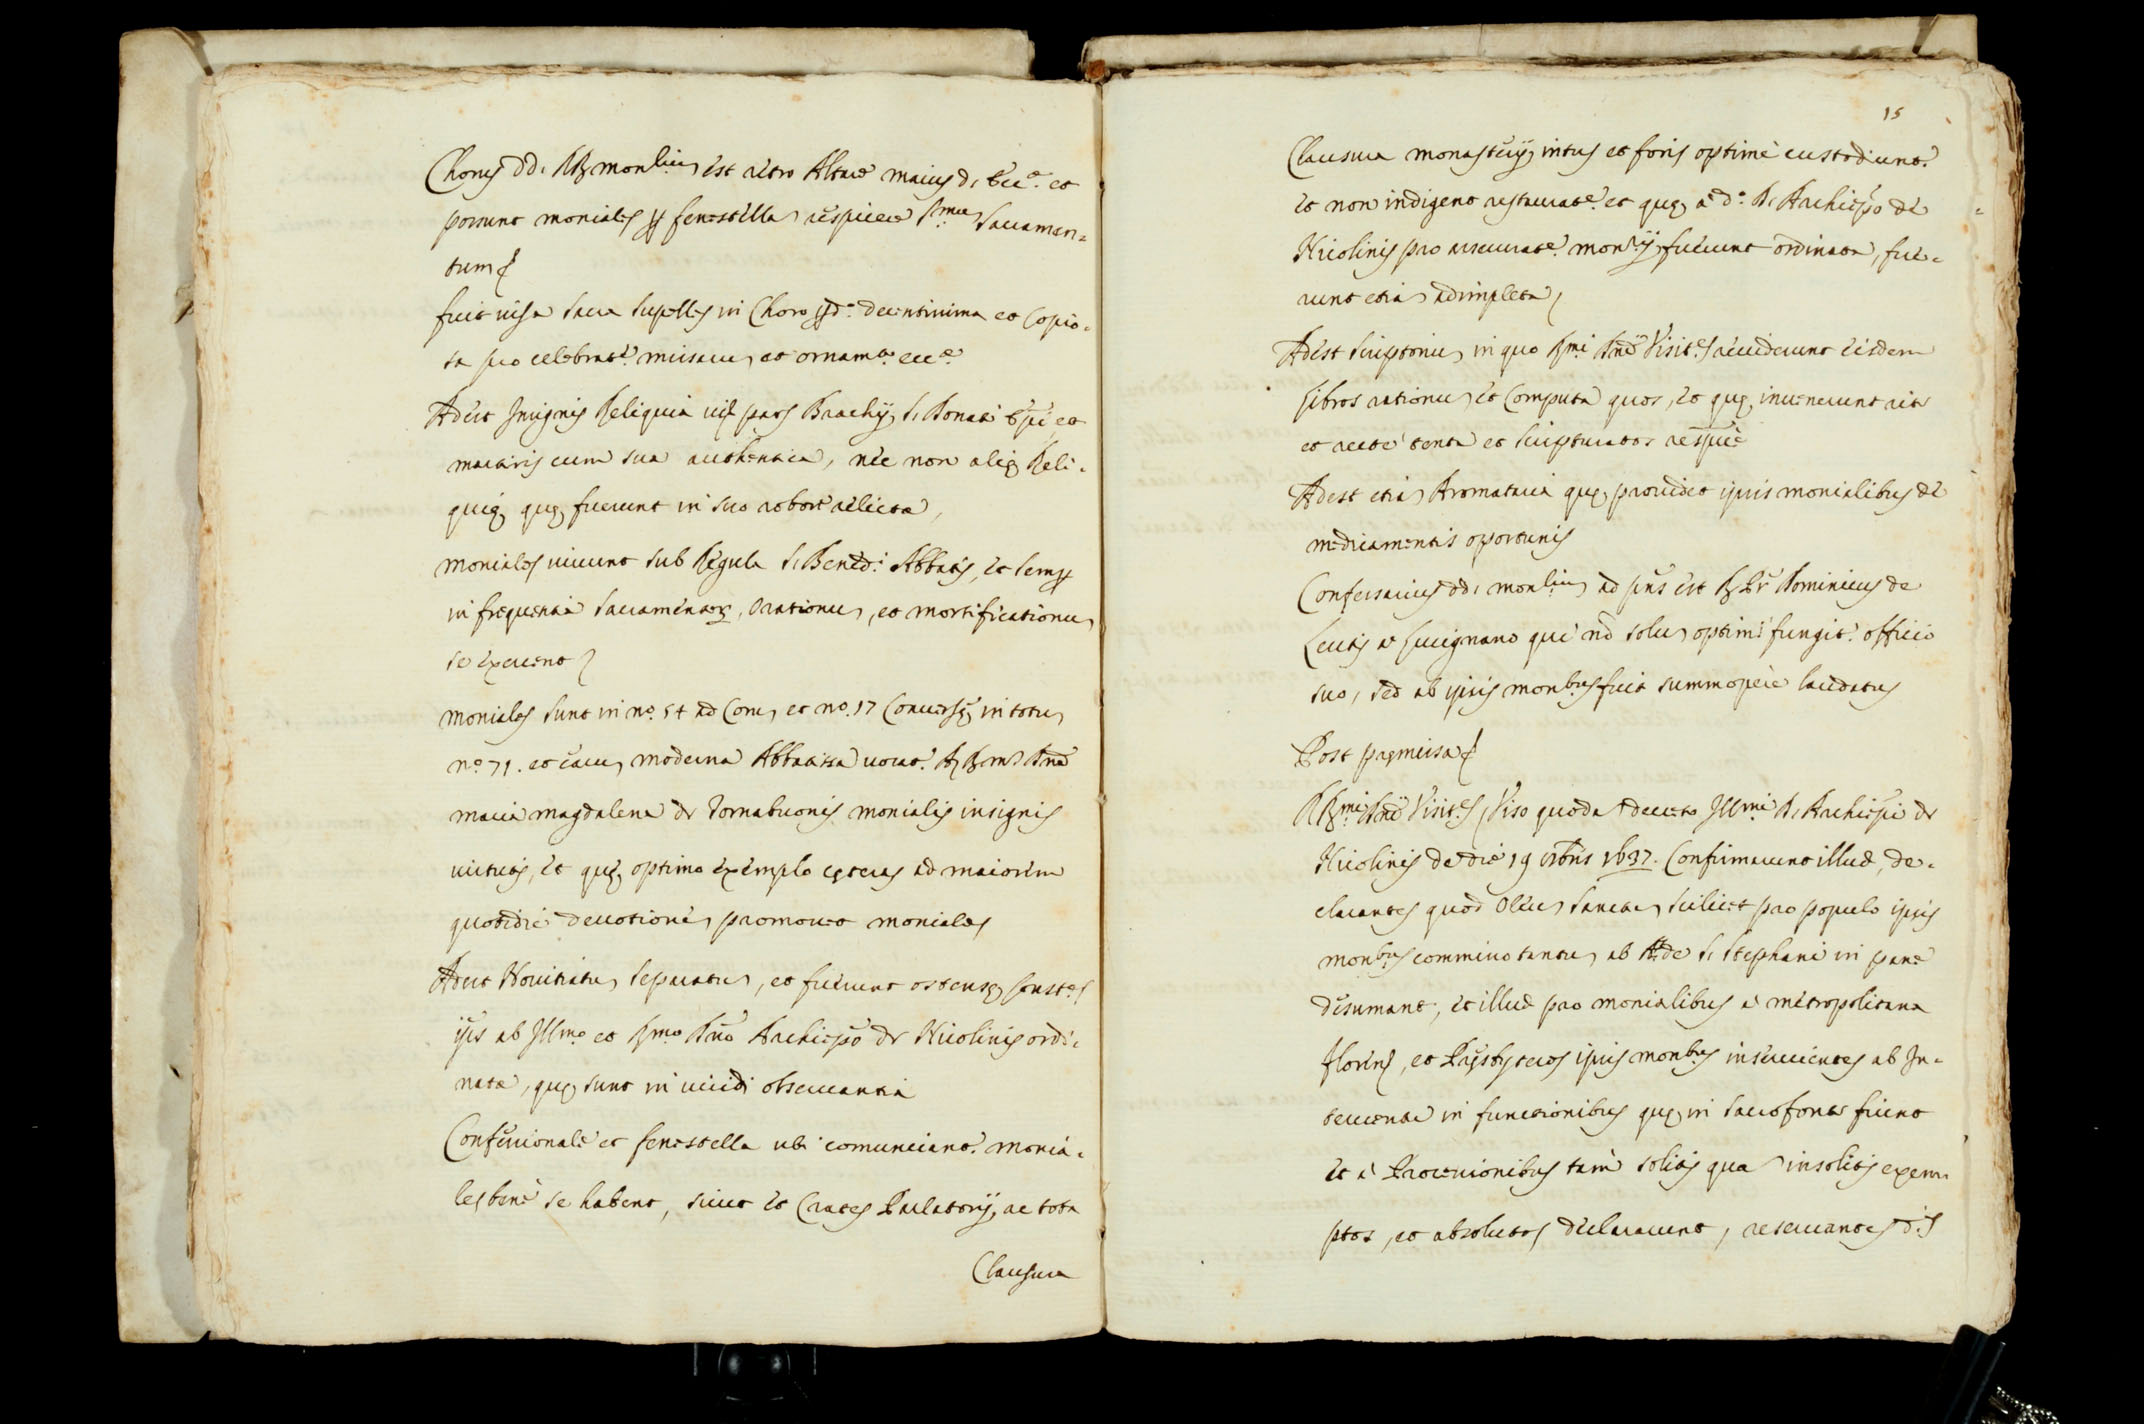 Chorus dd. RR. monlium est retro Altare maius d. Ecc.ᵉ et
possunt moniales p fenestella respicere S.mu Sacramen=
tum
fuit visa Sacra Supellex in Choro pd.º decentissima et Copio=
sa pro celebrat.e missaru, et ornam.to ecc.ᵉ
Adest Insignis Reliquia vis pars Brachij S. Donati Epi et
martiris cum sua authentica, nec non alię Reli=
quię, quę fuerunt in suo robore relictæ,
moniales vivunt sub Regula S. Bened.i Abbatis, et semp
in frequentia sacramentor, orationu, et mortificationu
se exercent
moniales sunt in n.º 54 ad Coru, et n.º 17 Conversę in totu
n.º 71. et earu moderna Abbatissa vocat. R. Rma Dna
maria magdalena de Tornabuonis monialis insignis
virtutis, et quę optimo exemplo cęteras ad maiorem
quotidie devotione promovet moniales
Adest Novitiatu separatu, et fuerunt ostensę Const.es
ipsis ab Illmo et Rmo Dno Archiepo de Nicolinis ordi=
natæ, quę sunt in viridi observantia
Confessionale et fenestella ubi comunicant. monia=
les bene se habent, sicut et Crates Parlatorij, ac tota
Clausura
15
Clausura monasterij intus et foris optime custodiunt.
et non indigent restaurat.e et quę a d.º D. Archiepo de
Nicolinis pro assecurat.e mon.rij fuerunt ordinata, fue=
runt etia adimpleta,
Adest Scriptoriu in quo Rmi Dni Visit.es viderunt eisdem
libros rationu, et Computa quos, et quę invenerunt rite
et recte tenta et scripturatos respue
Adest etia Aromataria quę providet ipsis monialibus de
medicamentis oportunis
Confessarius dd. monlium ad pns est R. Pr Dominicus de
Leutis a Lucignano qui no solu optime fungit. officio
suo, sed ab ipsis monbus fuit summopere laudatus
Post pręmissa
RRmi Dni Visit.es Viso quoda decreto Illmi D. Archiepi de
Nicolinis de die 19 Xbris 1637. Confirmarunt illud, de=
clarantes quod Oleu Sanctu, scilicet pro populo ipsis
monbus commissio tantu ab Æde S. Stephani in pane
desumant, et illud pro monialibus a metropolitana
floren, et Pręsbyteros ipsis monbus inservientes ab In=
tervent.e in functionibus quę in sacro fonte fiunt
et a Processionibus tam solitis qua insolitis exem=
ptos, et absolutos declararunt, reservantes d.s